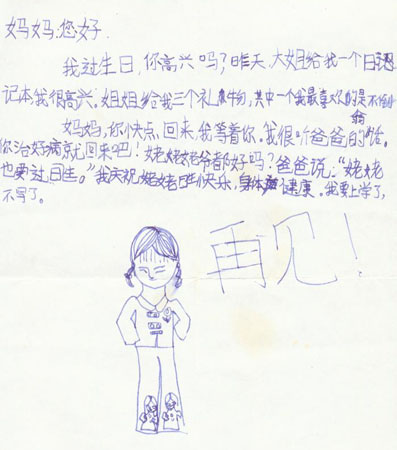 妈妈:您好.
我过生日,你高兴吗?昨天,大姐给我一个日记
记本我很高兴。姐姐给我三个礼物,其中一个我最喜欢的是不倒
翁
妈妈,你快点,回来,我等着你。我很听爸爸的话。
你治好病就回来吧!姥姥姥爷都好吗?爸爸说:“姥姥
也要过日生。”我庆祝姥姥日生快乐,身体健康。我要上学了,
不写了。
再见!